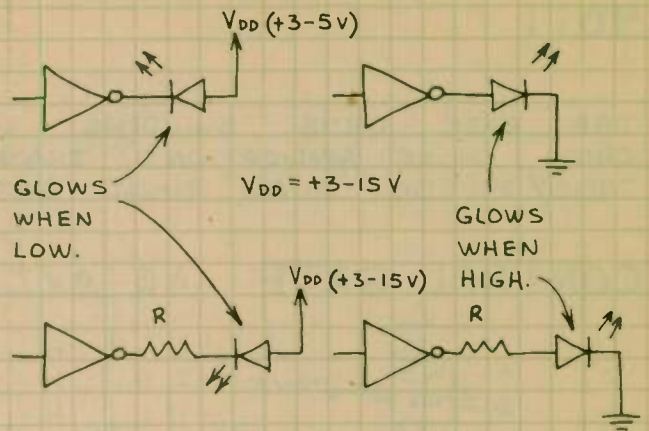 VDD (+3-5V)
GLOWS
WHEN
LOW.
VDD = +3-15 V
GLOWS
WHEN
HIGH.
VDD (+3-15V)
R
R